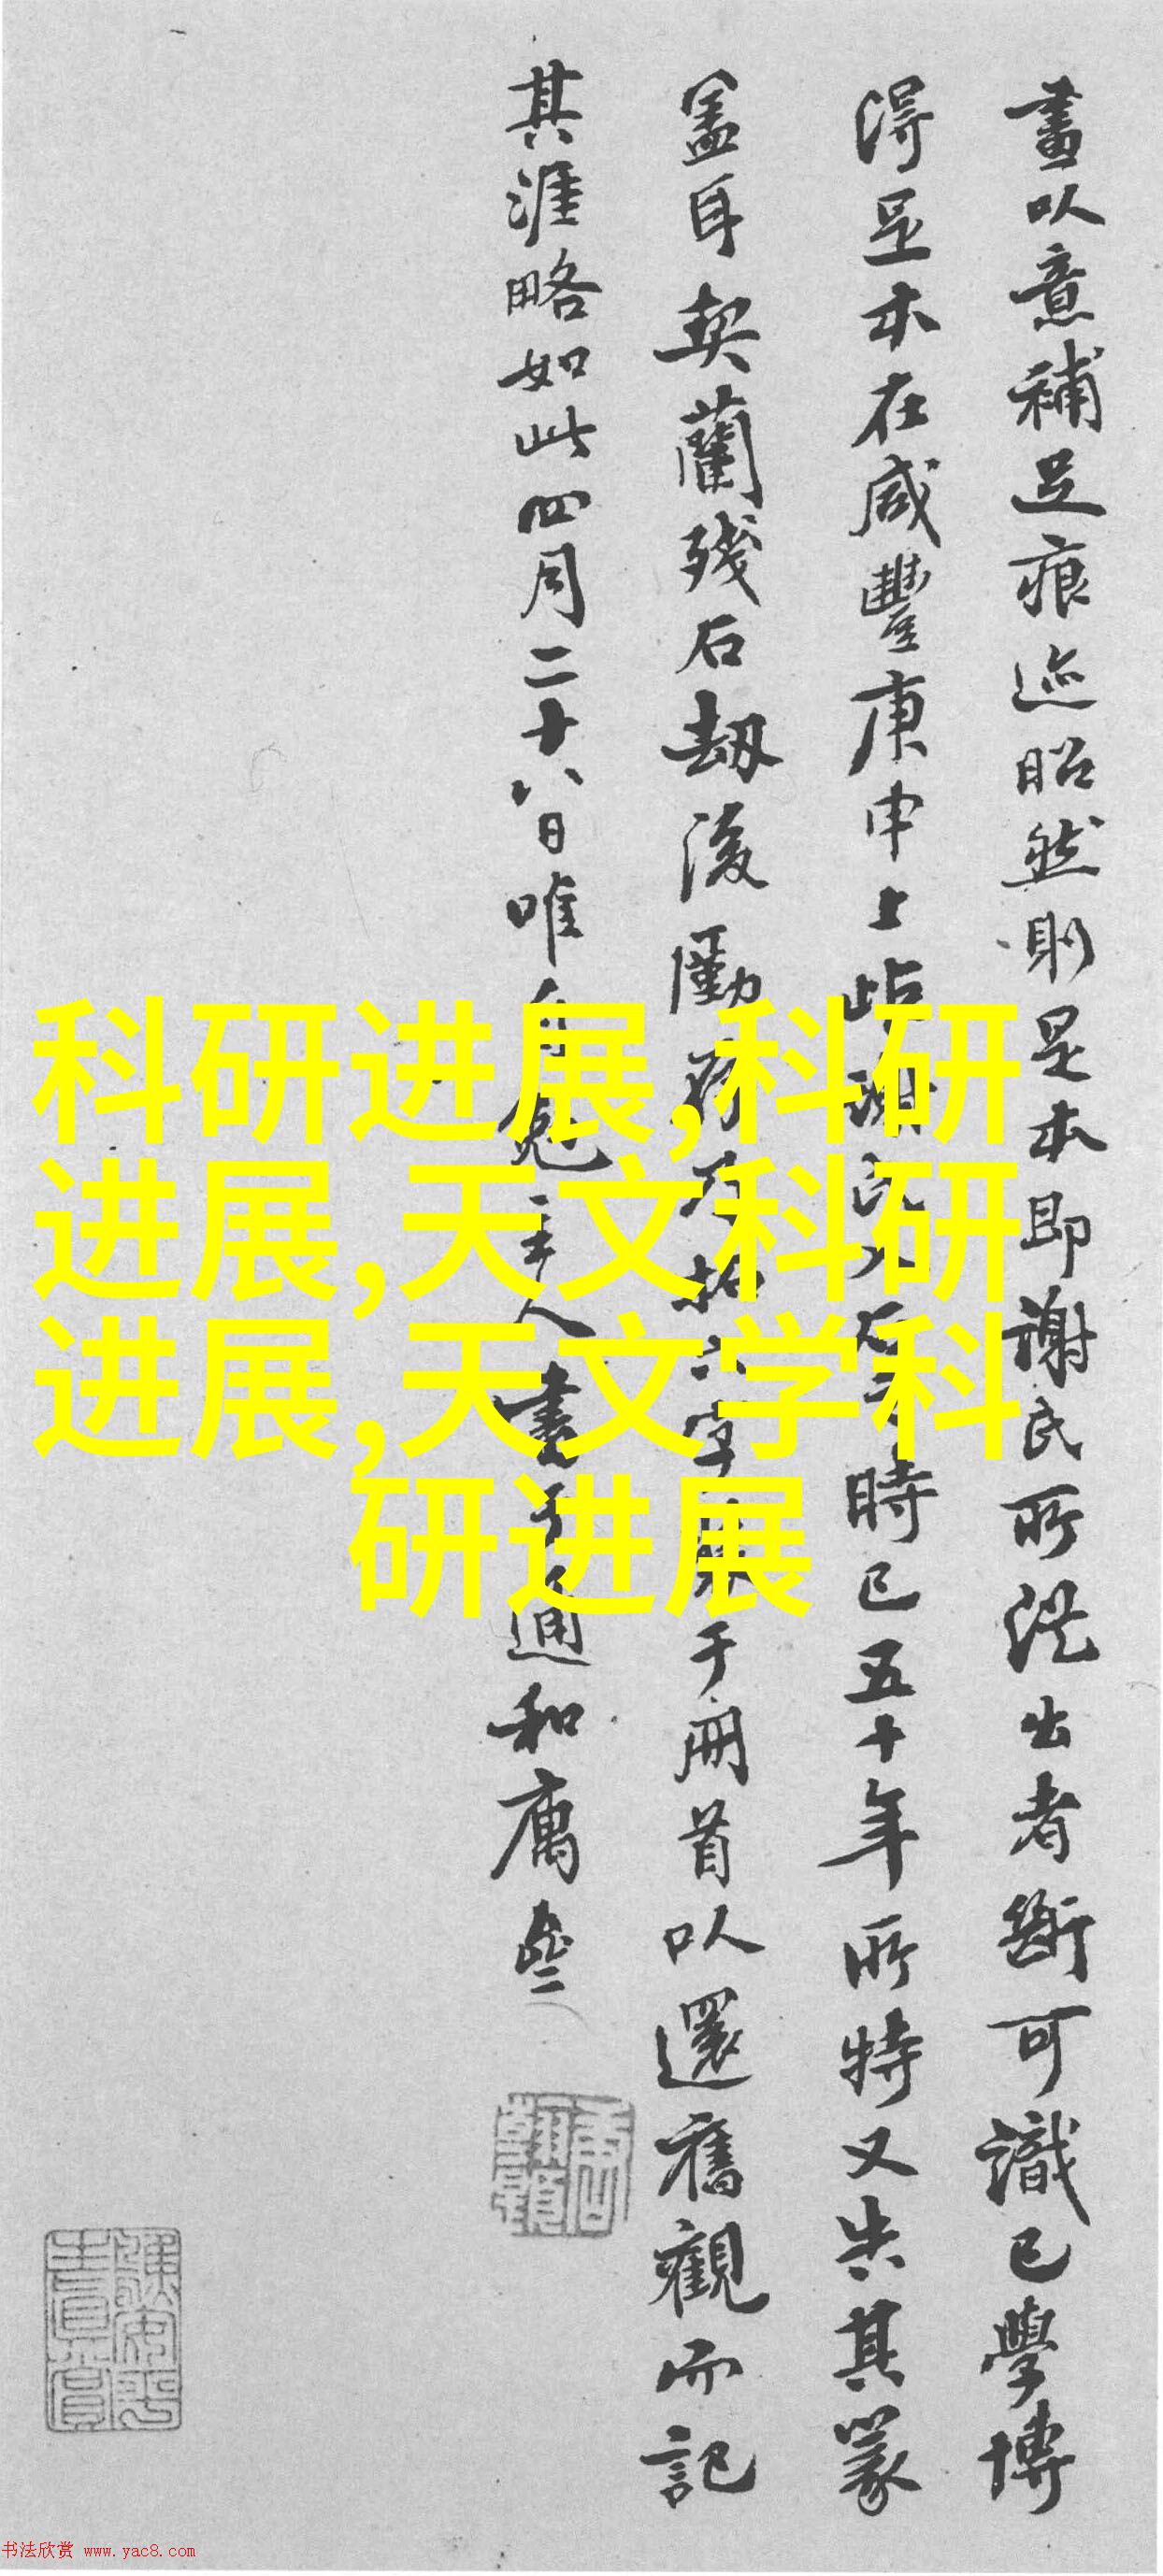 畫以意補足痕迹昭然則是本即謝氏所從出者斷可識已學博
得足本在咸豐庚申上距謝氏時已五十年所特又失其篆
蓋耳契蘭殘石劫後勵于冊首以還舊觀而記
其涯略如此四月二十八日唯自勉主人書于通和廣
科研进展,科研
进展,天文科研
进展,天文学科
研进展
书法欣赏 www.yac8.com